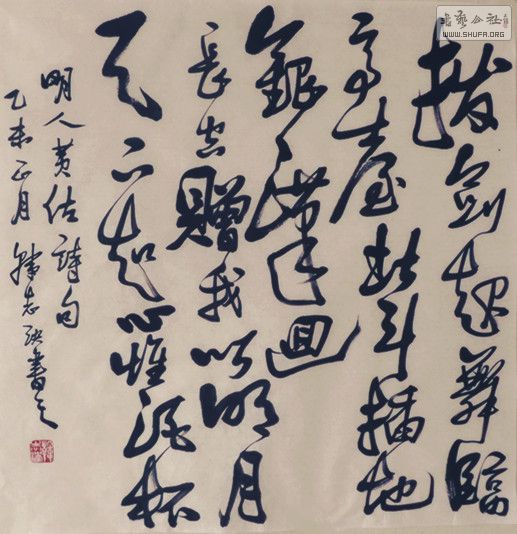 書藝公社
WWW.SHUFA.ORG
拔剑起舞臨
高臺北斗插地
銀漢迴
長空贈我以明月
天下知心惟酒杯
明人黄佐詩句
乙未正月 韓志强書之